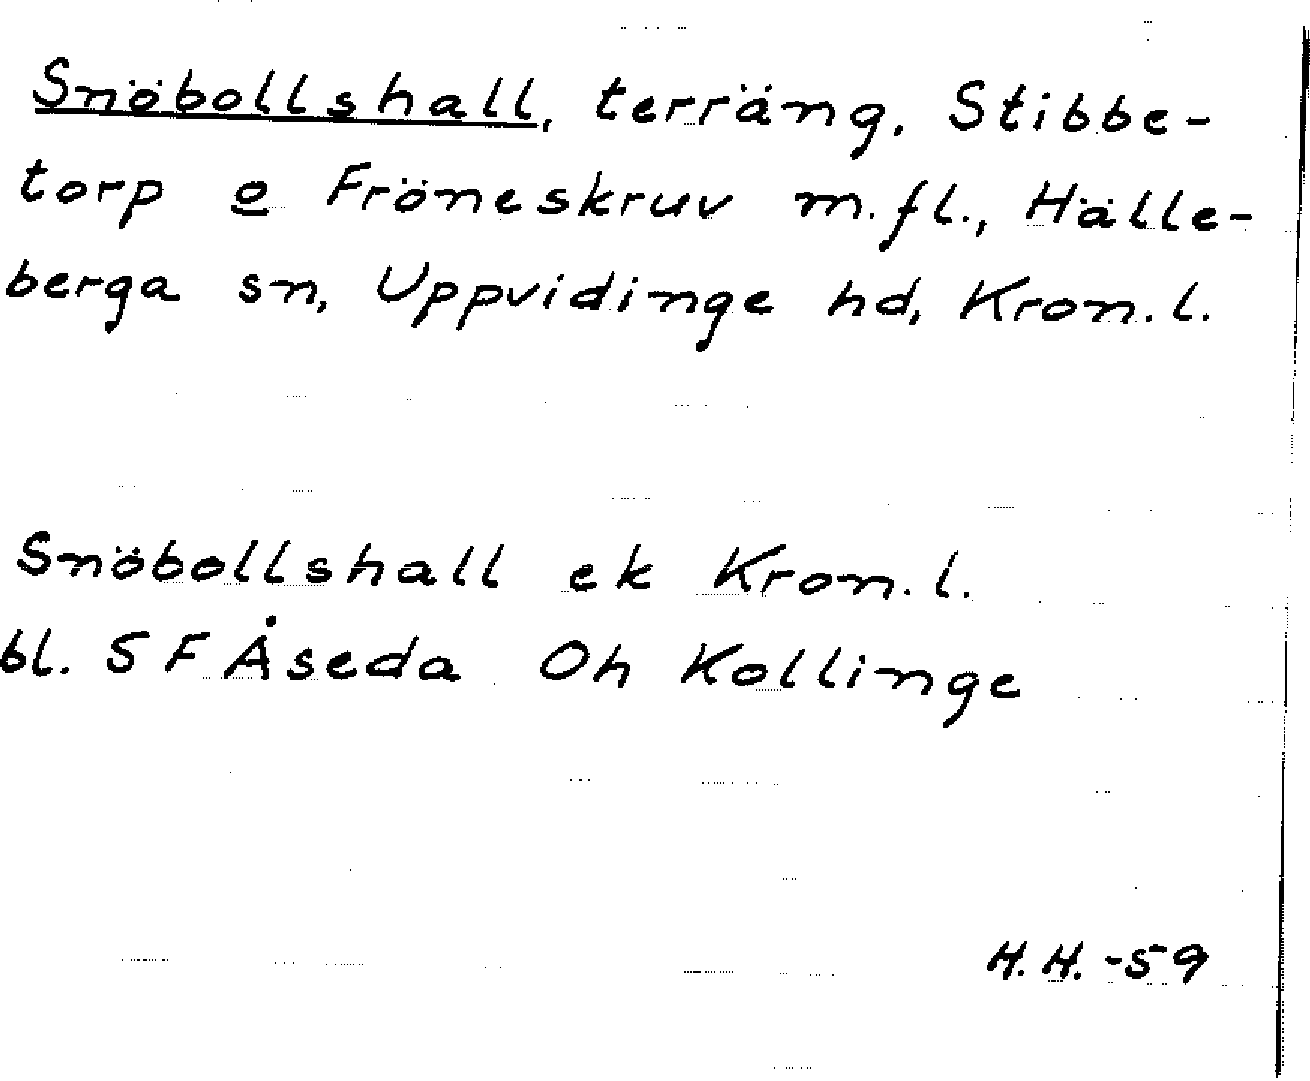 Snöbollshall, terräng, Stibbe-
torp o Fröneskruv m.fl., Hälle-
berga sn, Uppvidinge hd, Kron.l.
Snöbollshall ek Kron.l.
bl. 5 F Åseda Oh Kollinge
H.H.-59